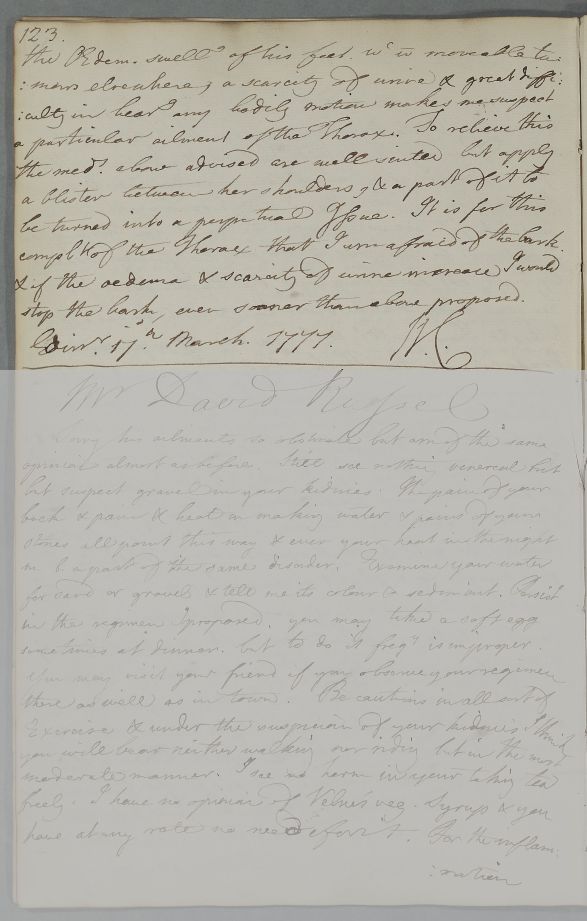 123.
the Oedem. swell.g of his feet wc is moveable tu:
:mors elsewhere, a scarcity of urine & great diffi:
:culty in bear.g any bodily motion makes me suspect
a particular ailment of the Thorax. To relieve this
the med.s above advised are well suited but apply
a blister between her shoulders, & a part of it to
be turned into a perpetual Issue. It is for this
complt of the Thorax that I am afraid of the bark
& if the oedema & scarcity of urine increase I would
stop the bark, even sooner than above proposed.
Edinr. 17th March. 1777. WC
Mr David Russel
Sorry his ailments so obstinate but am of the same
opinion almost as before. Still see nothing venereal but
but suspect gravel in your kidnies. The pain of your
back & pain & heat in making water & pains of your
stones all point this way & even your heat in the night
m. b. a part of the same disorder. Examine your water
for sand or gravel & tell me its colour & sediment. Persist
in the regimen I proposed. you may take a soft egg
sometimes at dinner. but to do it freqy is improper.
You may visit your friend if you observe your regimen
there as well as in town. Be cautious in all sort of
Exercise & under the suspicion of your kidnies I think
you will bear neither walking nor riding but in the most
moderate manner. I see no harm in your taking tea
freely. I have no opinion of Velno's veg. Syrup & you
have at any rate no need for it. For the inflam:
:mation